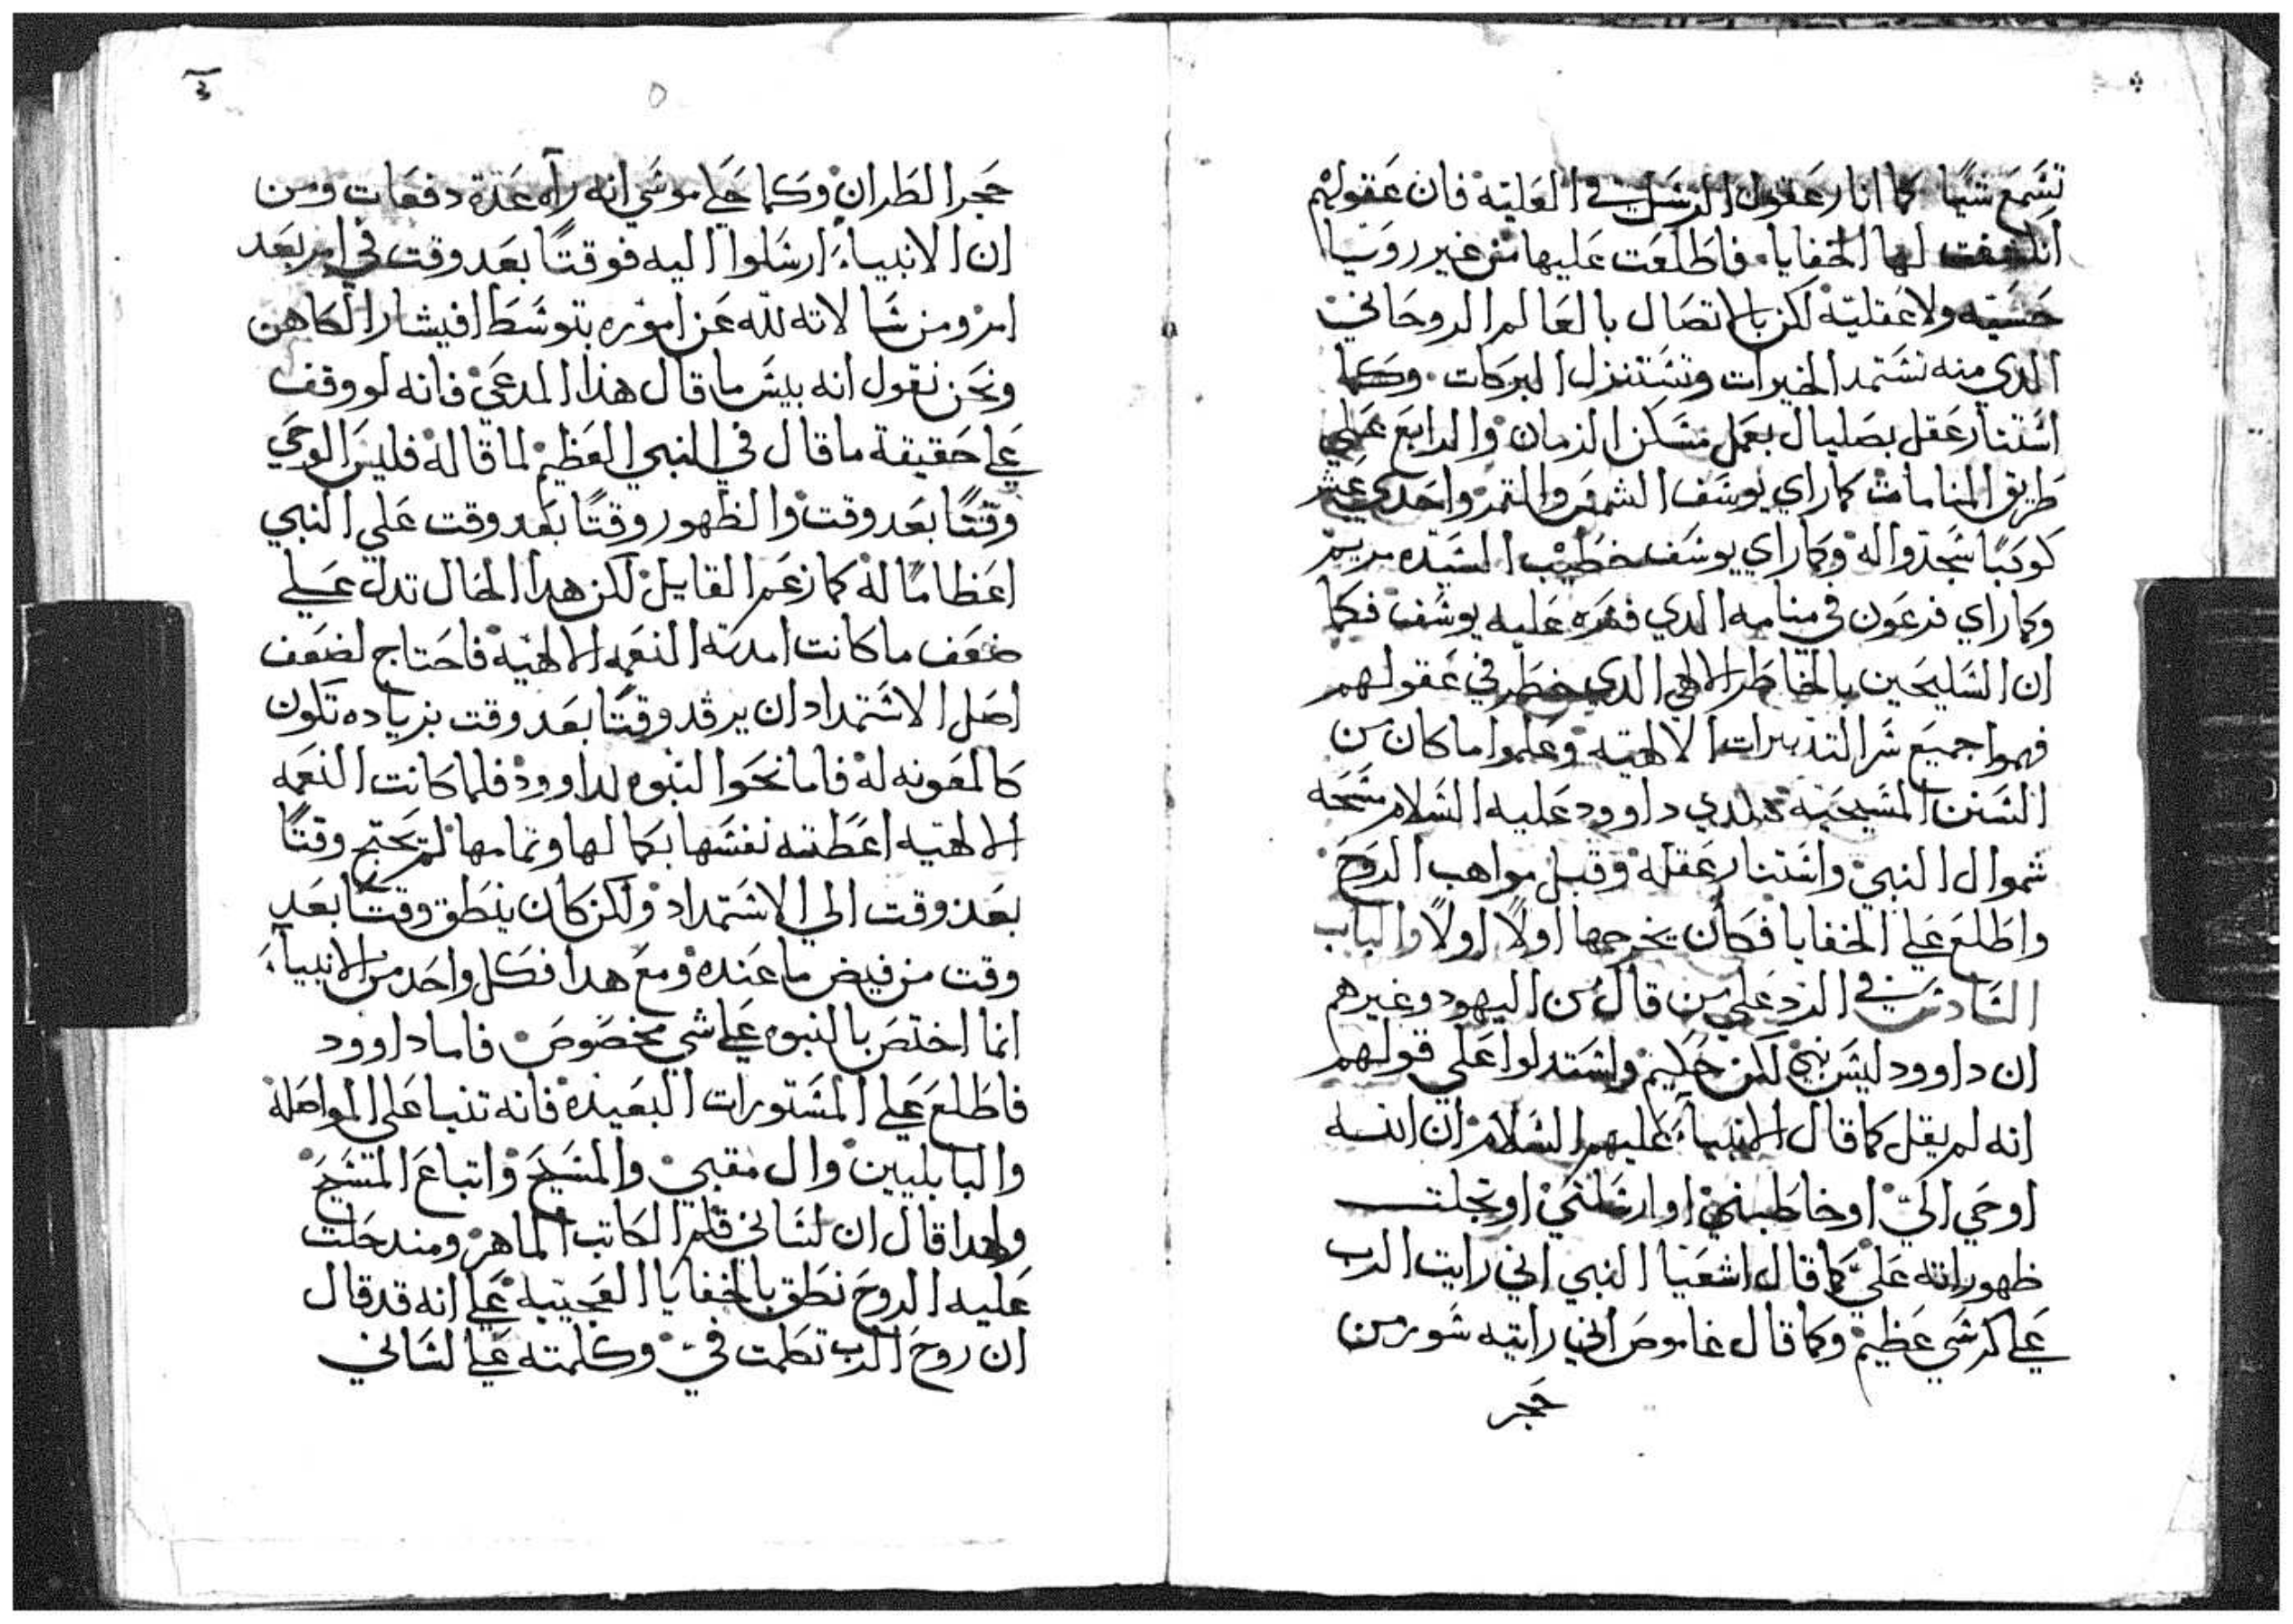 تسمع شيا كما انار عقول الرسل في العلية فان عقولهم
انكشفت لها الخفايا فاطلعت عليها من غير روسيا
حسية ولا عقلية لكن بالاتصال بالعالم الروحاني
الدي منه نستمد الخيرات ونستنزل البركات وكما
استنار عقل بصليال بعمل مسكن الزمان والرابع علي
طريق المنامات كما راي يوسف الشمس والقمر واحدي عشر
كوكبًا سجدوا له وكما راي يوسف خطيب السيده مريم
وكما راي فرعون في منامه الدي فسره عليه يوسف فكما
ان السليحين بالخاطر الالهي الدي خطر في عقولهم
فهموا جميع سر التدبيرات الالاهية وعلموا ما كان من
السنن المسيحية كدي داوود عليه السلام مسحه
شموال النبي واستنار عقله وقبل مواهب الروح
واطلع علي الخفايا فكان يخرجها اولاً اولاً والباب
السادس في الرد علي من قال من اليهود وغيرهم
ان داوود ليس نبي لكن حكيم واستدلوا علي قولهم
انه لم يقل كما قال الانبياء عليهم السلام ان الله
اوحي اليّ او خاطبني او ارسلني او تجلت
ظهوراته عليّ كما قال اشعيا النبي اني رايت الرب
علي كرسي عظيم وكما قال غاموص اني رايته سور من
حجر
حجر الطران وكما حلي موسي انه رآه عدة دفعات ومن
ان الانبياء ارسلوا اليه فوقتًا بعد وقت في امر بعد
امر ومن سالاته لله عن اموره بتوسط افيشار الكاهن
ونحن نقول انه بيس ما قال هذا المدعي فانه لو وقف
علي حقيقة ما قال في النبي العظيم لما قاله فليس الوحي
وقتًا بعد وقت والظهور وقتًا بعد وقت علي النبي
اعظامًا له كما زعم القايل لكن هدا الحال تدل علي
ضعف ما كانت امدته النعمه الالهية فاحتاج لضعف
اصل الاستمداد ان يرفد وقتًا بعد وقت بزياده تكون
كالمعونه له فاما نحو النبوه لداوود فلما كانت النعمه
الالهتيه اعطته نفسها بكمالها وتمامها لم يحتج وقتًا
بعد وقت الي الاستمداد ولكن كان ينطق وقتًا بعد
وقت من فيض ما عنده ومع هدا فكل واحد من الانبياء
انما اختص بالنبوه علي شي مخصوص فاما داوود
فاطلع علي المستورات البعيده فانه تنبا علي المواصله
والبابليين وال مقبي والمسيح واتباع المسيح
ولهدا قال ان لساني قلم الكاتب الماهر ومند حلت
عليه الروح نطق بالخفايا العجيبه علي انه قد قال
ان روح الرب تكلمت فيّ وكلمته علي لساني